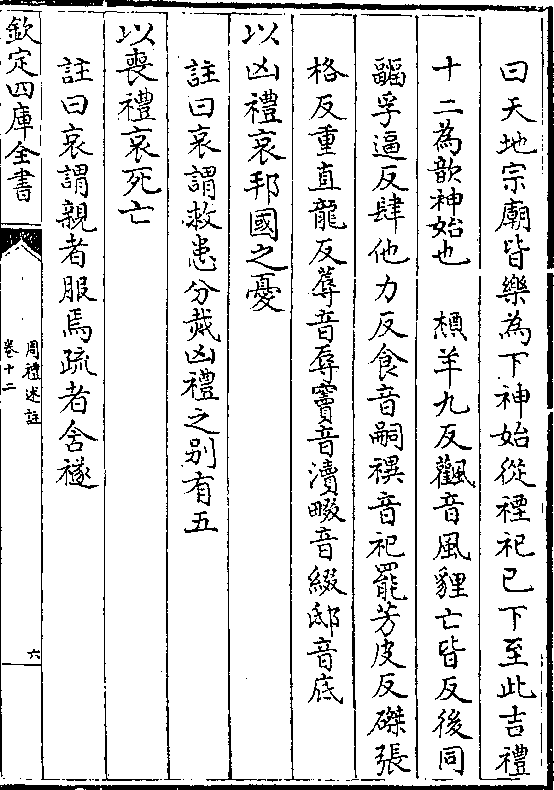 曰天地宗廟皆樂為下神始從禋祀已下至此吉禮
十二為歆神始也　槱羊九反飌音風貍亡皆反後同
疈孚逼反肆他力反食音嗣禩音祀罷芳皮反磔張
格反重直龍反蓐音辱竇音瀆畷音綴邸音底
以凶禮哀邦國之憂
註曰哀謂救患分烖凶禮之別有五
以喪禮哀死亡
註曰哀謂親者服焉疏者含襚
欽定四庫全書
周禮述註
卷十二
六